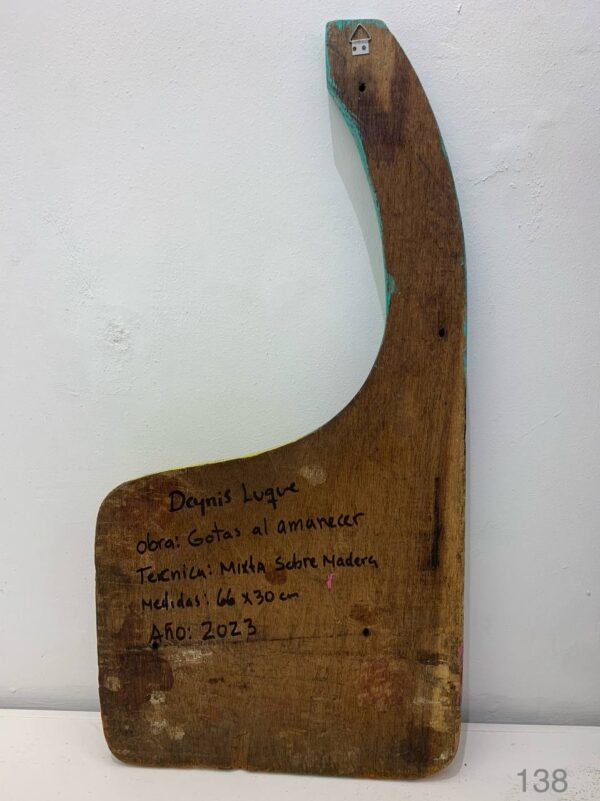 Deynis Luque
obra: Gotas al amanecer
Tecnica: Mixta Sobre Madera
Medidas: 66 x 30 cm
Año: 2023
138